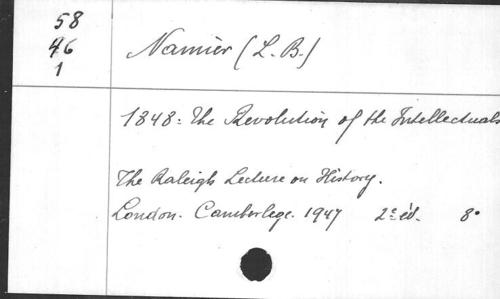 58
46
1
Namier (L. B.)
1848: The Revolution of the Intellectuals
The Raleigh Lecture on History.
London. Camberlege. 1947 2e éd. 8°